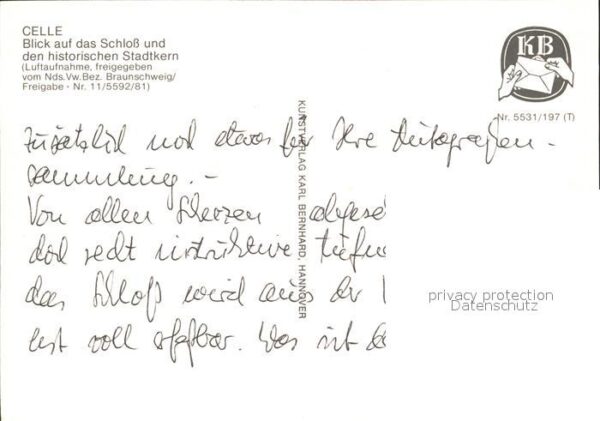 CELLE
Blick auf das Schloß und
den historischen Stadtkern
(Luftaufnahme, freigegeben
vom Nds.Vw.Bez. Braunschweig/
Freigabe - Nr. 11/5592/81)
KB
Nr. 5531/197 (T)
KUNSTVERLAG KARL BERNHARD, HANNOVER
Zusätzlich noch etwas für Ihre Autografen-
sammlung. –
Von allen Scherzen abgese
doch recht instruktive
das Schloß wird aus der
erst voll erfaßbar. Was ist
privacy protection
Datenschutz